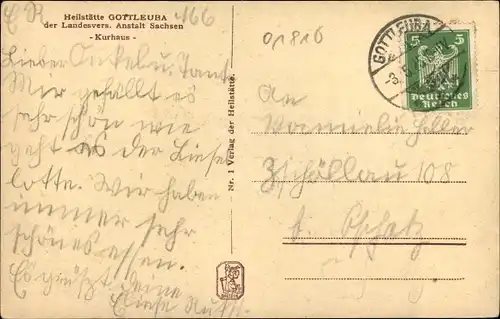 Heilstätte GOTTLEUBA
der Landesvers. Anstalt Sachsen
- Kurhaus -
166
Lieber Onkel u. Tant
Mir gefällt es
sehr schön wie
geht es der Liese
lotte. Wir haben
immer sehr
schönes essen.
Es grüszt deine
Liese
Nr. 1 Verlag der Heilstätte.
01816
GOTTLEUBA
5 5
Deutsches
Reich
An
Zschöllau 108
b. Oschatz